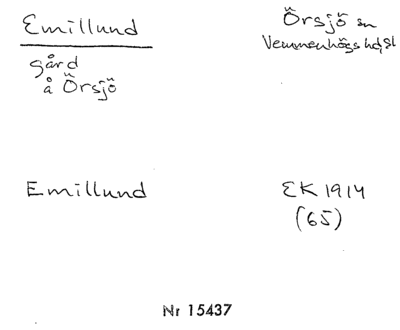 Emillund
Örsjö sn
Vemmenhögs hd, Sl
gård
å Örsjö
Emillund
EK 1914
(65)
Nr 15437